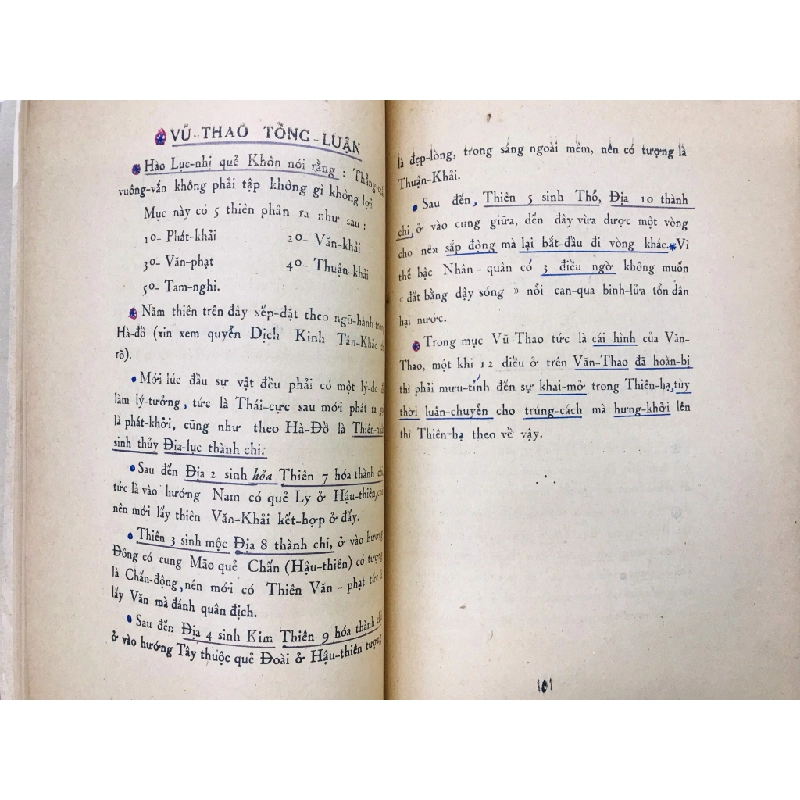 VŨ-THAO TỔNG-LUẬN
Hào Lục-nhị quẻ Khôn nói rằng : Thẳng
vuông-vắn không phải tập không gì không lợi
Mục này có 5 thiên phân ra như sau :
10- Phát-khải 20- Văn-khải
30- Văn-phạt 40- Thuận-khải
50- Tam-nghi.
Năm thiên trên đây xếp-đặt theo ngũ-hành
Hà-đồ (xin xem quyển Dịch Kinh Tân-Khảo
rõ).
Mới lúc đầu sự vật đều phải có một lý-do
làm lý-tưởng, tức là Thái-cực sau mới phát
là phát-khởi, cũng như theo Hà-Đồ là
sinh thủy Địa-lục thành chi.
Sau đến Địa 2 sinh hỏa Thiên 7 hóa thành
tức là vào hướng Nam có quẻ Ly ở Hậu-thiên,
nên mới lấy thiên Văn-Khải kết-hợp ở đấy.
Thiên 3 sinh mộc Địa 8 thành chi, ở vào hướng
Đông có cung Mão quẻ Chấn (Hậu-thiên) có tượng
là Chấn-động, nên mới có Thiên Văn-phạt tức
lấy Văn mà đánh quân địch.
Sau đến Địa 4 sinh Kim Thiên 9 hóa thành
ở vào hướng Tây thuộc quẻ Đoài ở Hậu-thiên tượng
là đẹp-lòng, trong sáng ngoài mềm, nên có tượng là
Thuận-Khải.
Sau đến, Thiên 5 sinh Thổ, Địa 10 thành
chi, ở vào cung giữa, đến đây vừa được một vòng
cho nên sắp động mà lại bắt-đầu đi vòng khác. Vì
thế bậc Nhân-quân có 3 điều ngờ không muốn
« đất bằng dậy sóng » nổi can-qua binh-lửa tổn dân
hại nước.
Trong mục Vũ-Thao tức là cái hình của Văn-
Thao, một khi 12 điều ở trên Văn-Thao đã hoàn-bị
thì phải mưu-tính đến sự khai-mở trong Thiên-hạ, tùy
thời luân-chuyển cho trúng-cách mà hưng-khởi lên
thì Thiên-hạ theo về vậy.
101